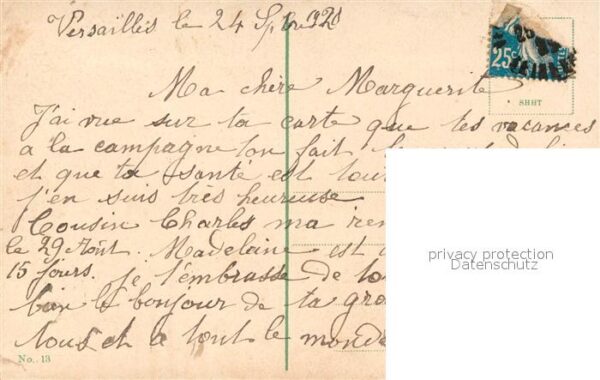 Versailles le 24 Spbre 1920
25c
Ma chère Marguerite
SHHT
J'ai vue sur ta carte que tes vacances
a la campagne ton fait
et que ta santé est
j'en suis très heureuse
Cousin Charles ma
le 29 Août. Madelaine est
15 jours. je t'embrasse de
bien le bonjour de ta
tous et a tout le monde
No. 13
privacy protection
Datenschutz